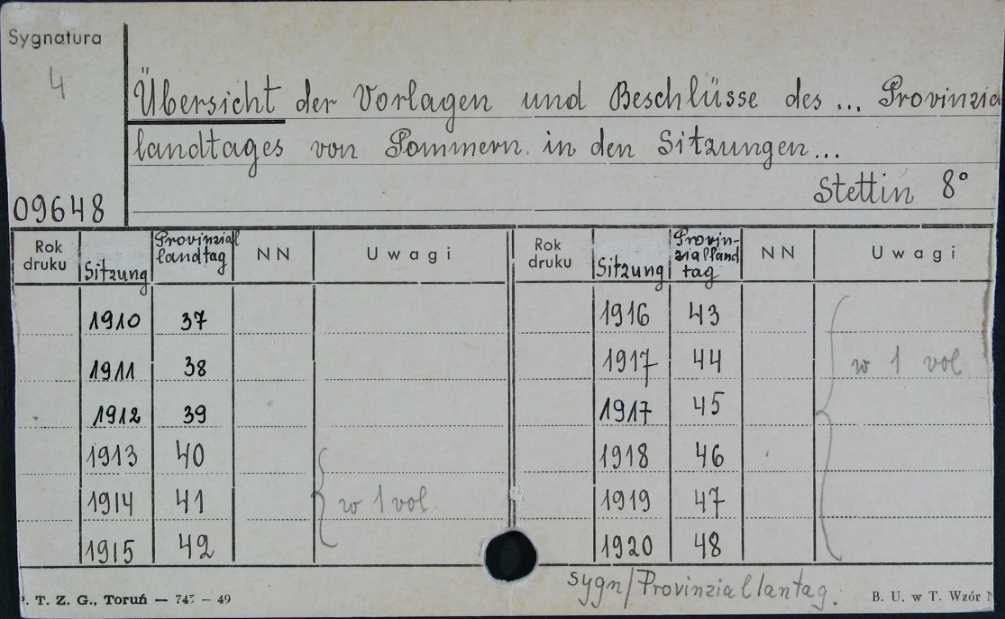 Sygnatura
4
Übersicht der Vorlagen und Beschlüsse des ... Provinzia
landtages von Pommern in den Sitzungen ...
Stettin 8°
09648
Rok druku Sitzung Provinzial landtag NN Uwagi Rok druku Sitzung Provin- zialland tag NN Uwagi
1910 37 1916 43
1911 38 1917 44 w 1 vol
1912 39 1917 45
1913 40 1918 46
1914 41 w 1 vol 1919 47
1915 42 1920 48
sygn/Provinziallantag.
. T. Z. G., Toruń — 74 – 49 B. U. w T. Wzór